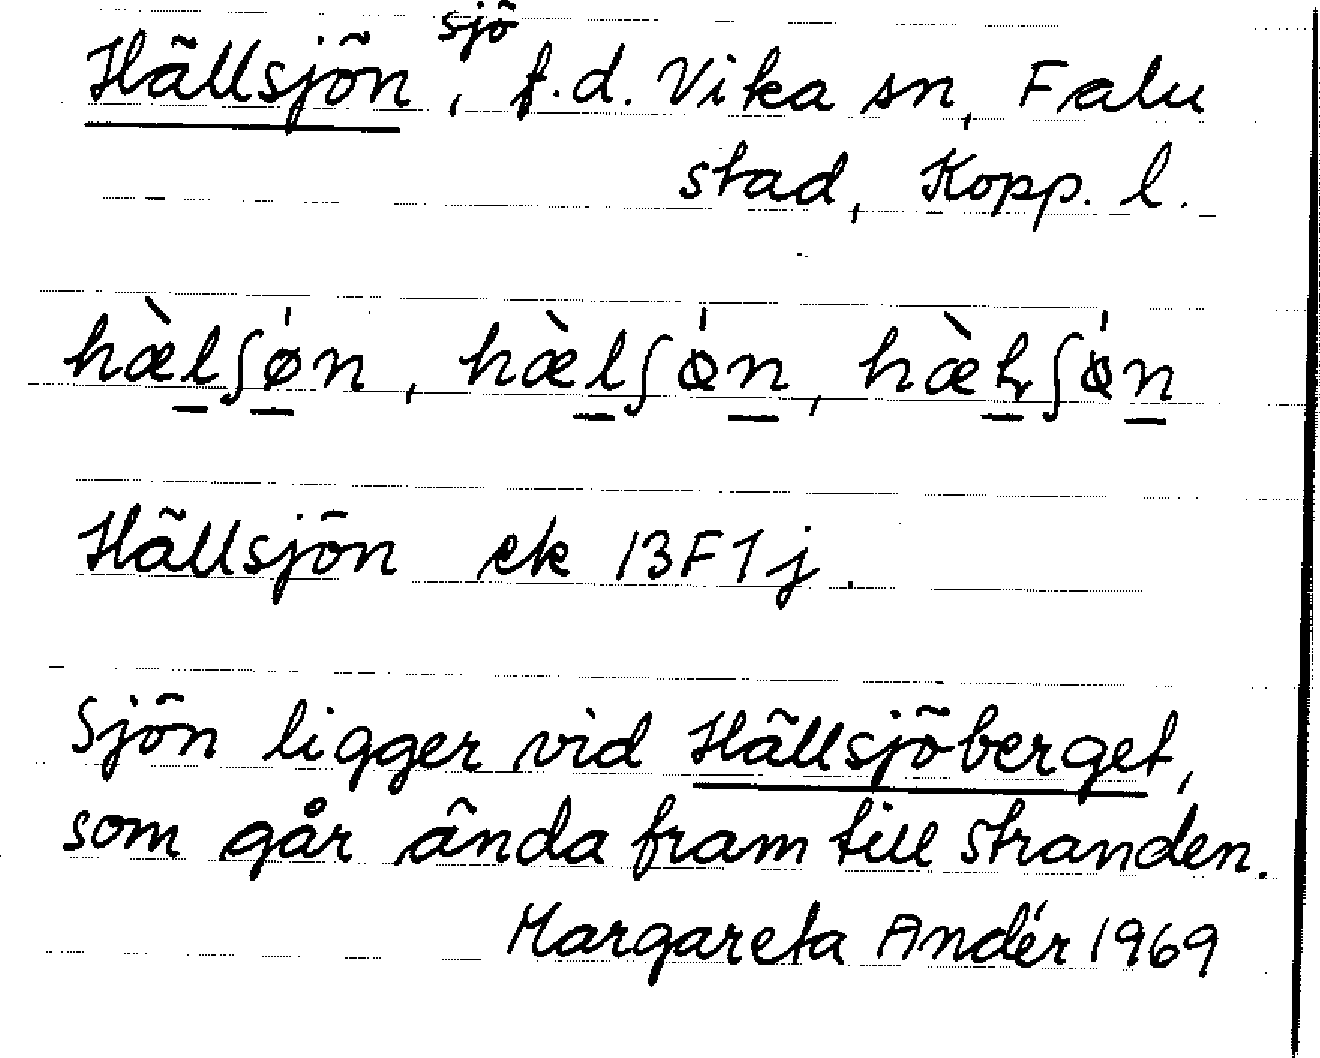 Hällsjön, sjö f.d. Vika sn, Falu
stad, Kopp. l.
hæ̀lʃǿn, hæ̀lʃǿn, hæ̀ɬʃǿn
Hällsjön ek 13F1j.
Sjön ligger vid Hällsjöberget,
som går ända fram till stranden.
Margareta Andér 1969